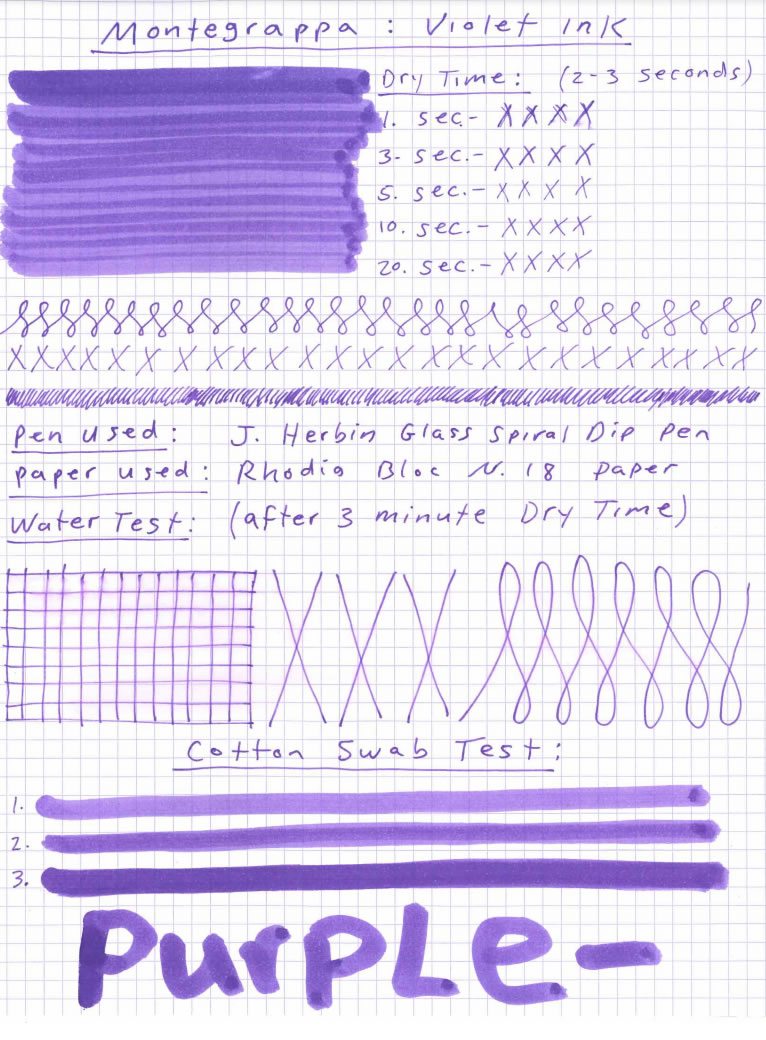 Montegrappa : Violet Ink
Dry Time: (2-3 seconds)
1. sec.- X X X X
3. sec.- X X X X
5. sec.- X X X X
10. sec.- X X X X
20. sec.- X X X X
X X X X X X X X X X X X X X X X X X X X X X X X X X
Pen used: J. Herbin Glass Spiral Dip Pen
paper used: Rhodia Bloc N. 18 paper
Water Test: (after 3 minute Dry Time)
Cotton Swab Test:
1.
2.
3.
PurPLe-